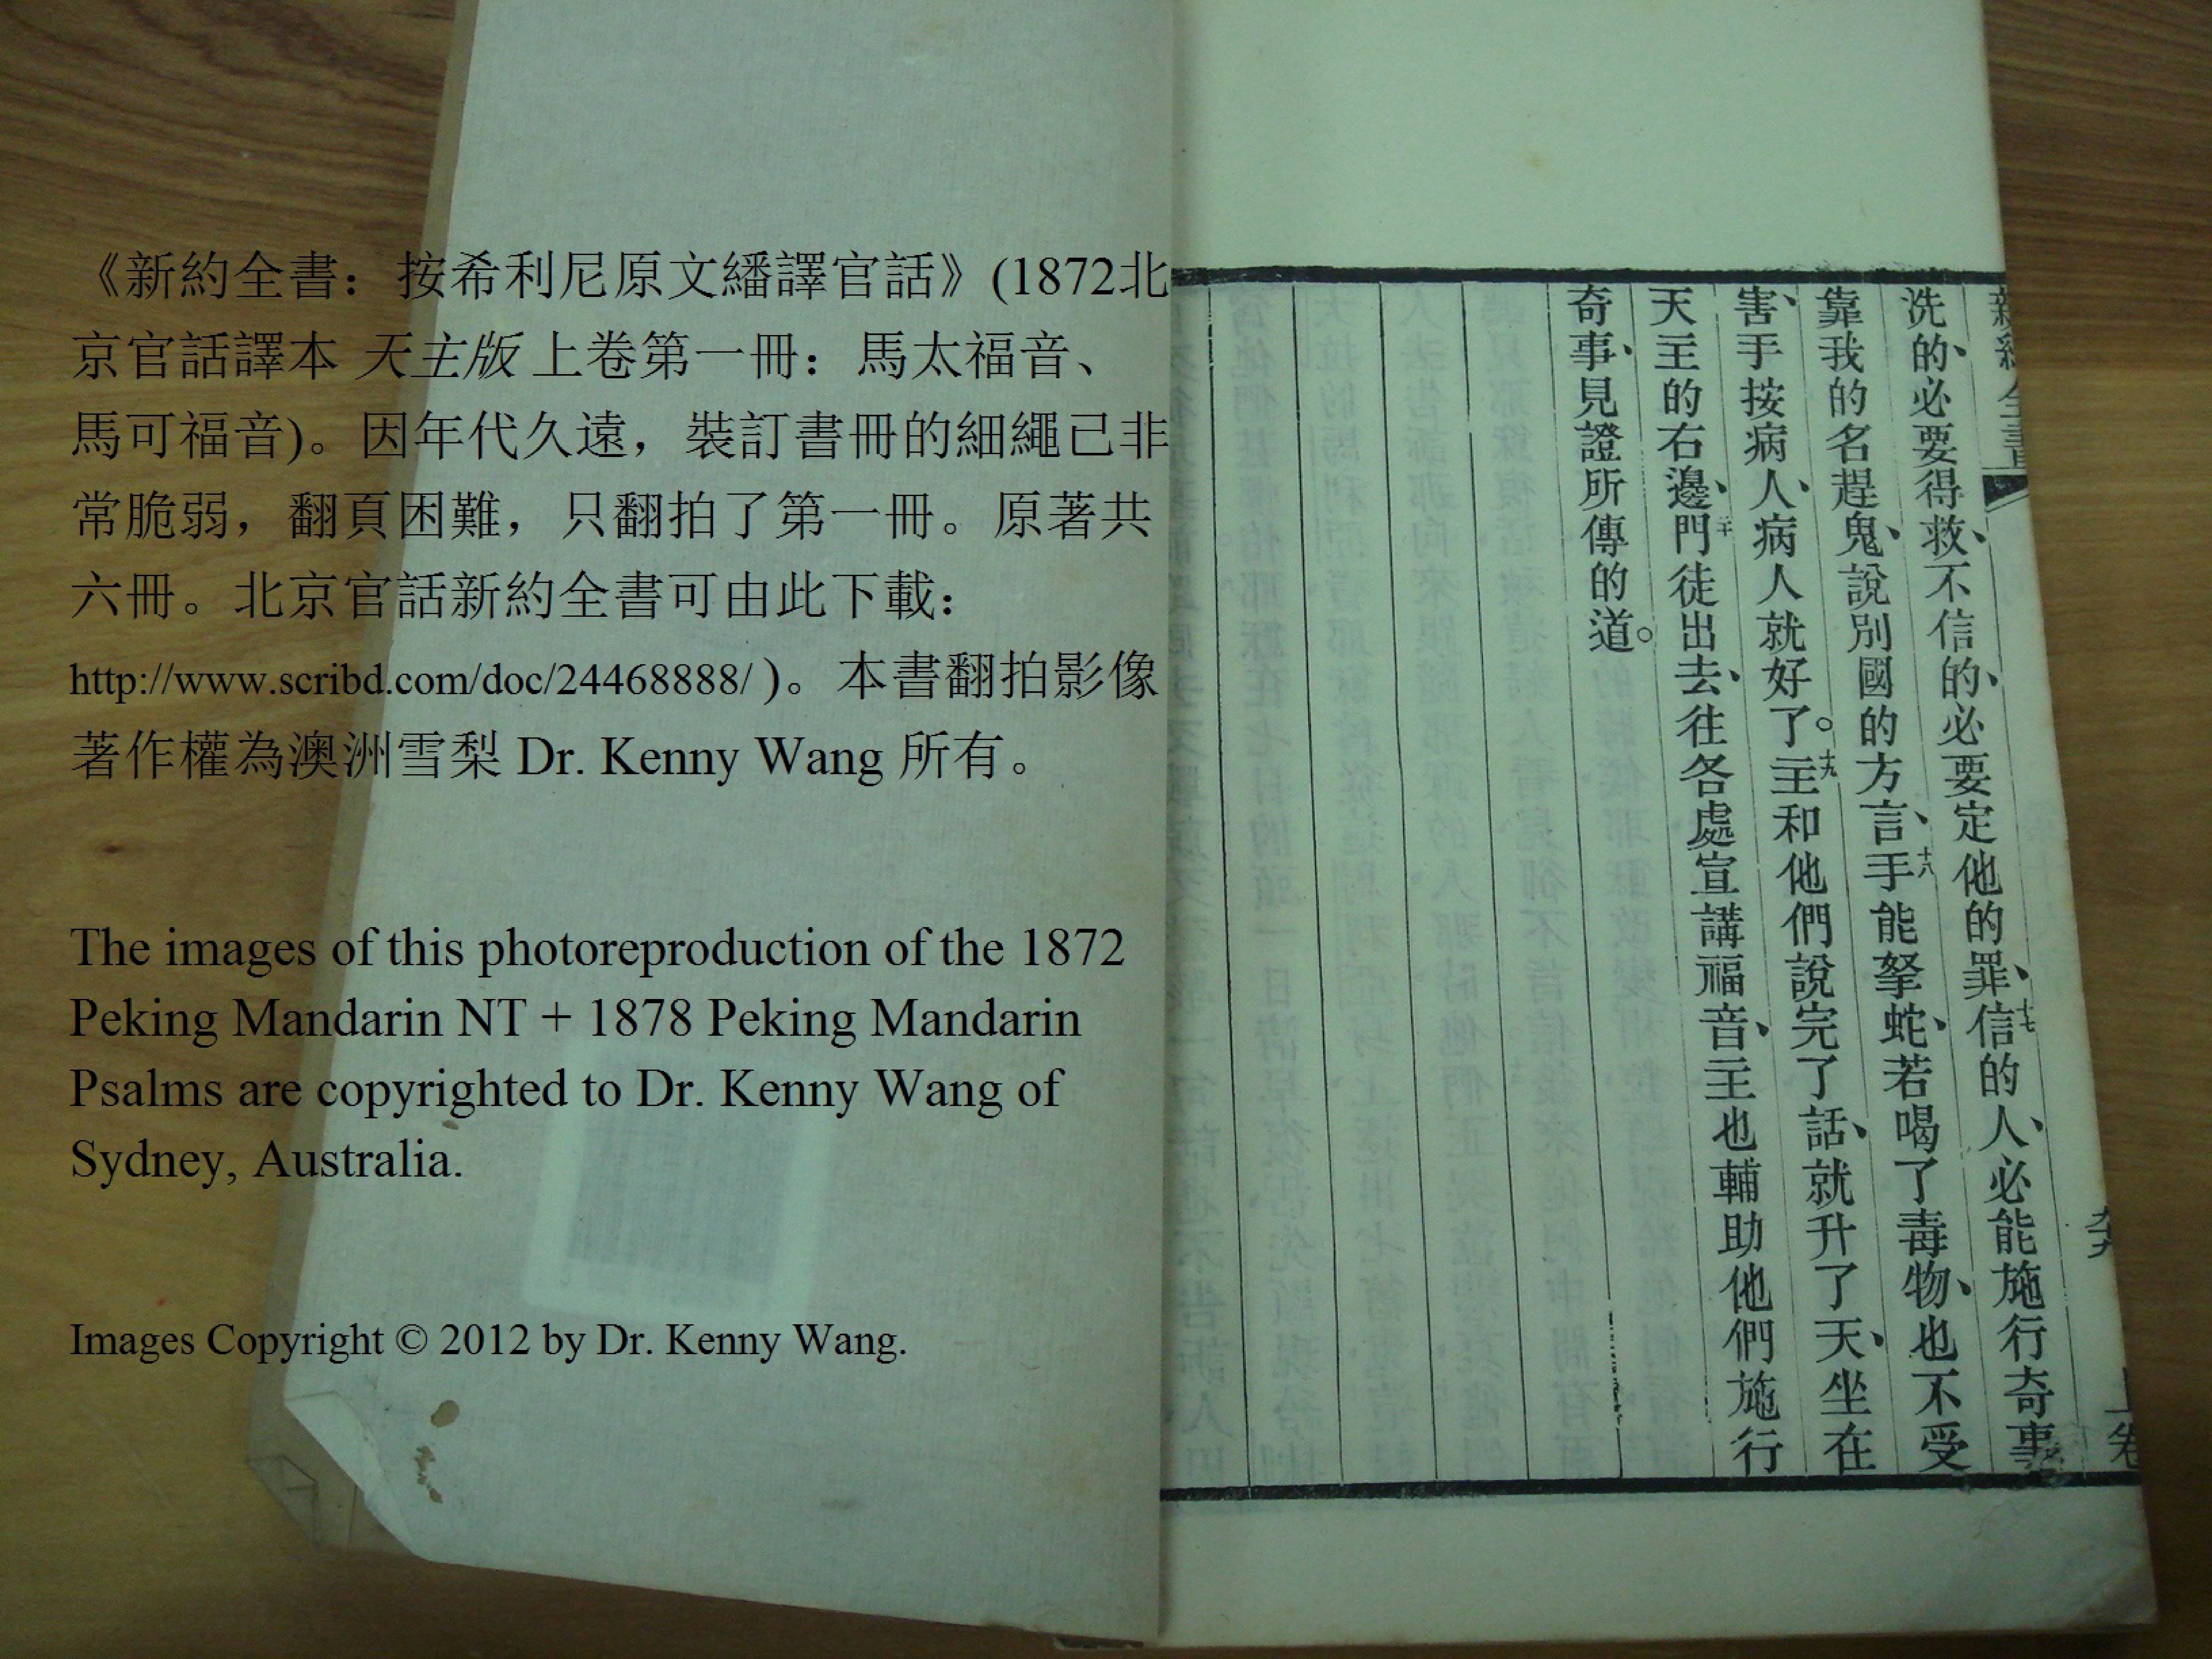 《新約全書：按希利尼原文繙譯官話》(1872北
京官話譯本 天主版 上卷第一冊：馬太福音、
馬可福音)。因年代久遠，裝訂書冊的細繩已非
常脆弱，翻頁困難，只翻拍了第一冊。原著共
六冊。北京官話新約全書可由此下載：
http://www.scribd.com/doc/24468888/ )。本書翻拍影像
著作權為澳洲雪梨 Dr. Kenny Wang 所有。
The images of this photoreproduction of the 1872
Peking Mandarin NT + 1878 Peking Mandarin
Psalms are copyrighted to Dr. Kenny Wang of
Sydney, Australia.
Images Copyright © 2012 by Dr. Kenny Wang.
新約全書 上卷
洗的、必要得救、不信的、必要定他的罪、十七信的人、必能施行奇事
靠我的名趕鬼、說別國的方言、十八手能拏蛇、若喝了毒物、也不受
害、手按病人、病人就好了。十九主和他們說完了話、就升了天、坐在
天主的右邊、二十門徒出去、往各處宣講福音、主也輔助他們施行
奇事、見證所傳的道。